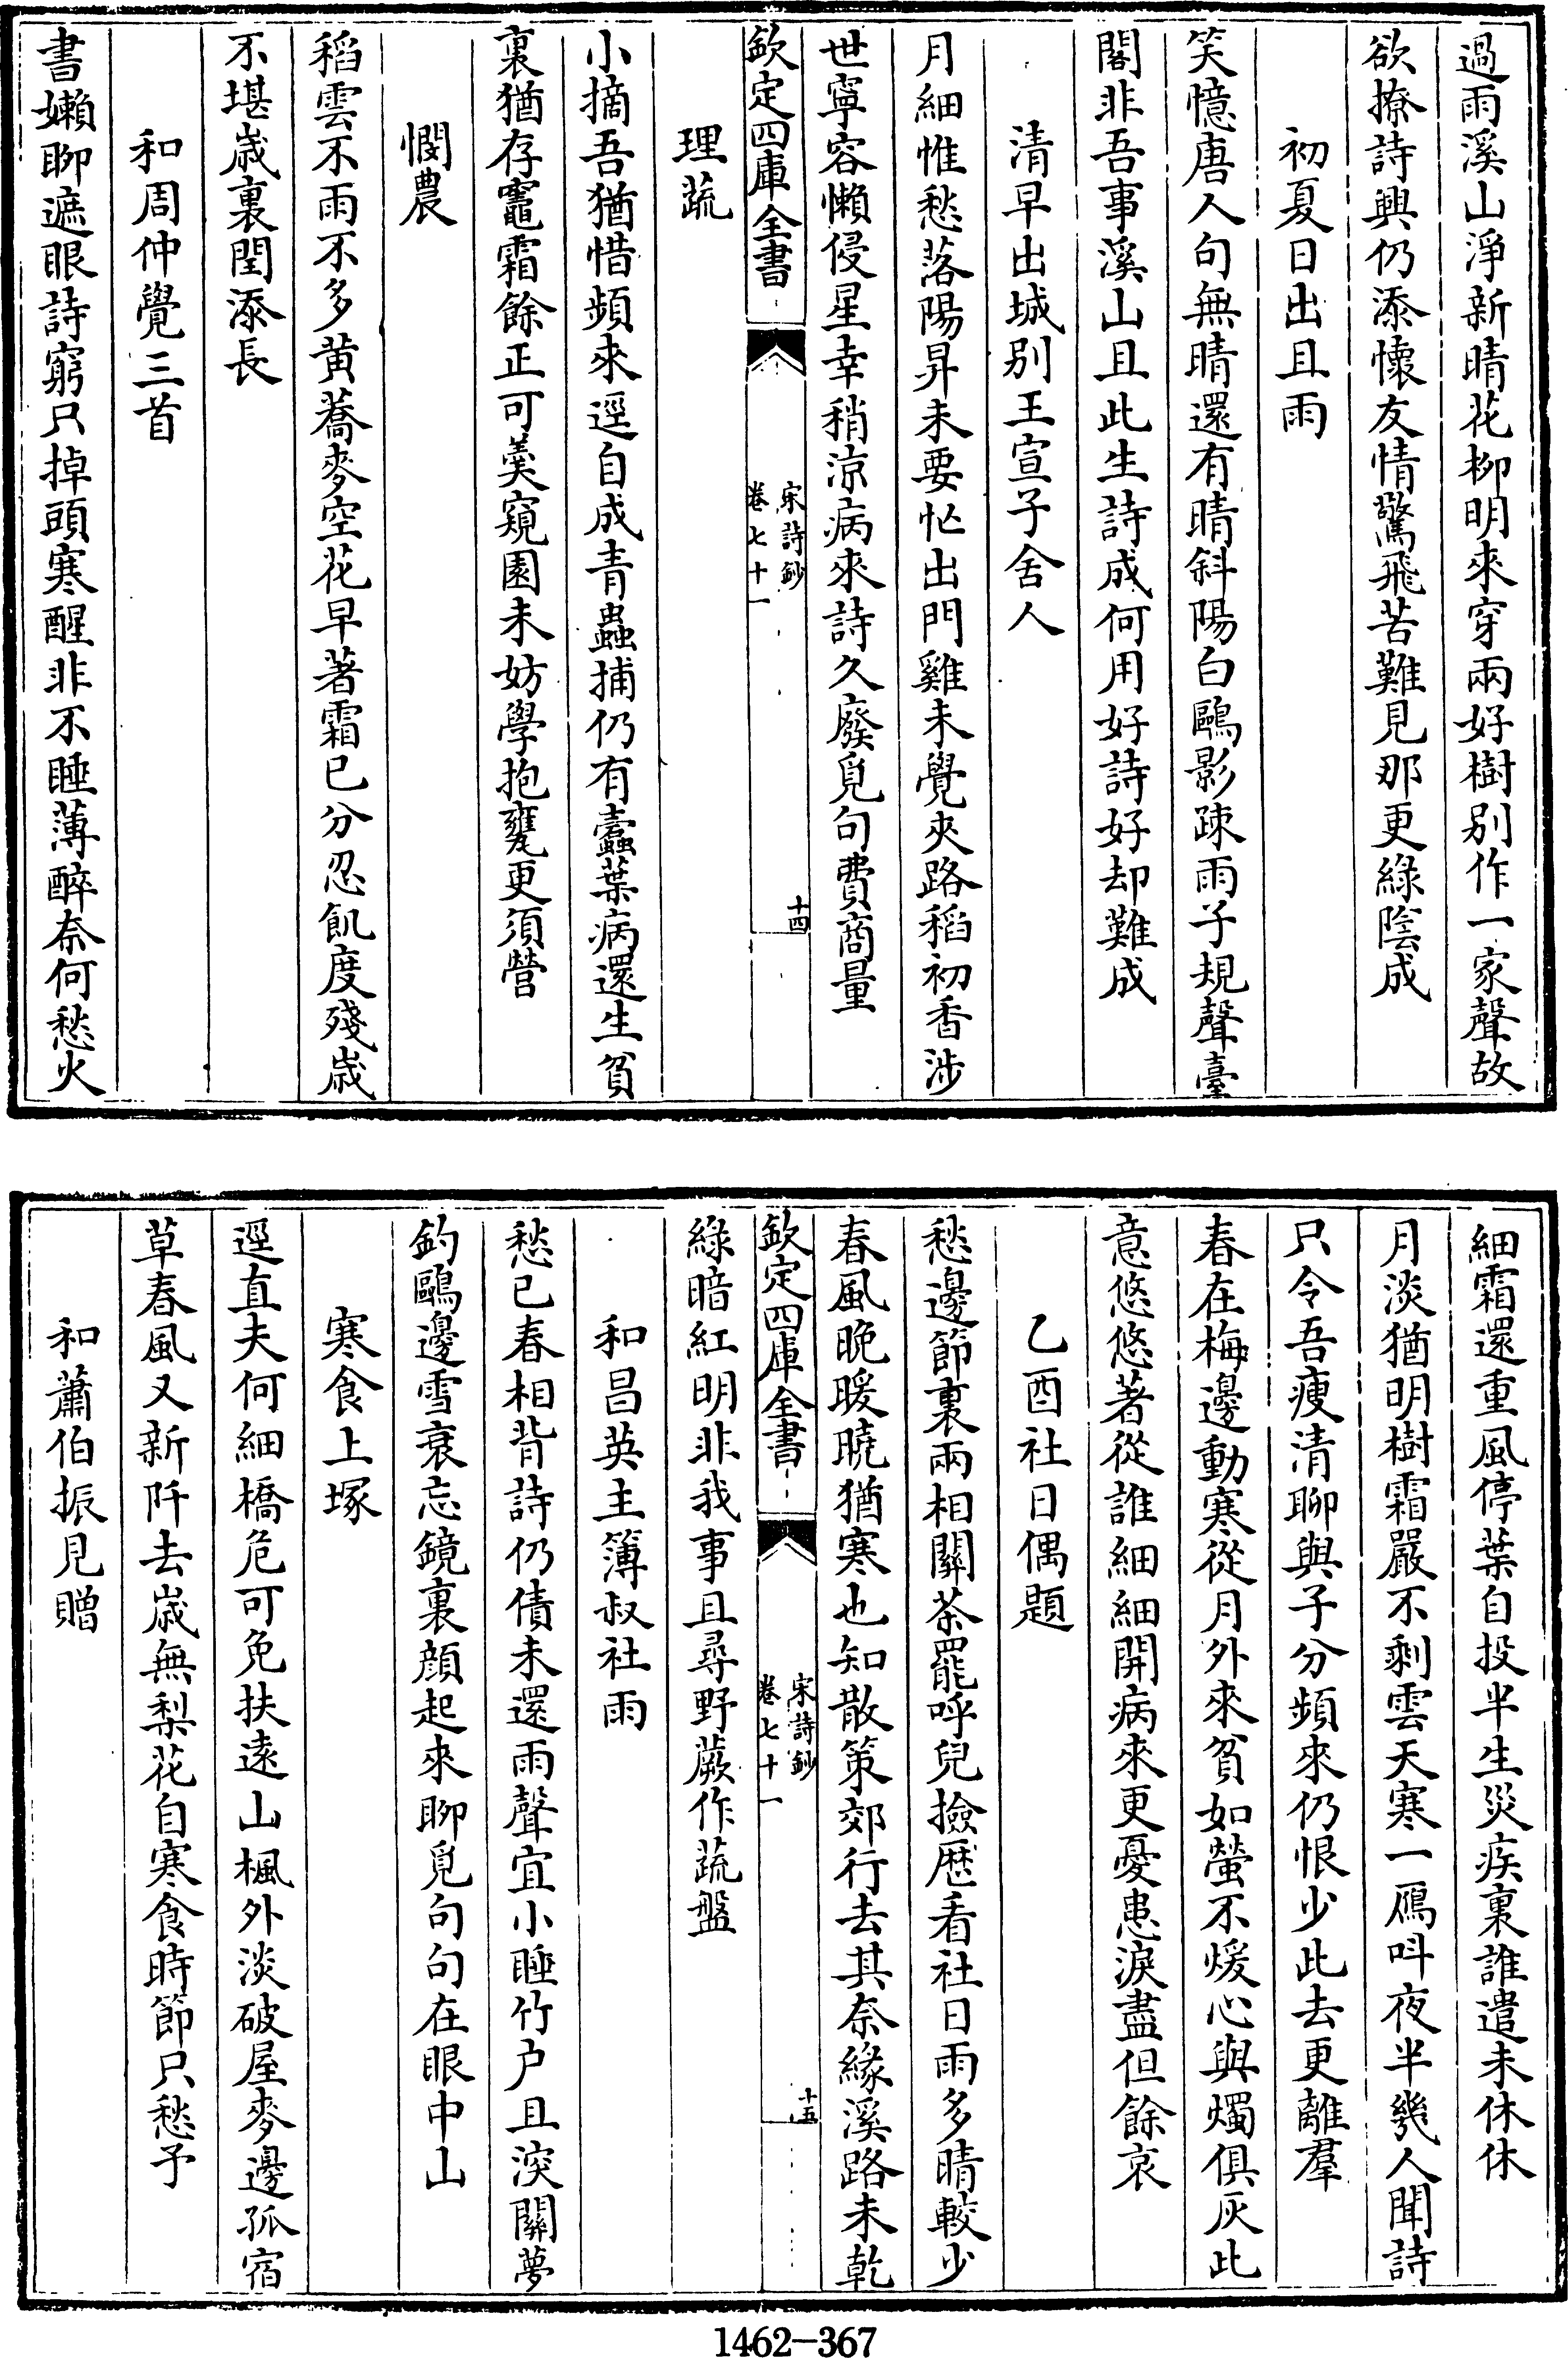 過雨溪山淨新晴花柳明來穿兩好樹别作一家聲故
欲撩詩興仍添懷友情驚飛苦難見那更綠陰成
初夏日出且雨
笑憶唐人句無晴還有晴斜陽白鷗影疎雨子規聲臺
閣非吾事溪山且此生詩成何用好詩好却難成
清早出城别王宣子舍人
月細惟愁落陽昇未要忙出門雞未覺夾路稻初香涉
世寧容懶侵星幸稍涼病來詩久廢覓句費商量
欽定四庫全書
宋詩鈔
卷七十一
十四
理蔬
小摘吾猶惜頻來逕自成青蟲捕仍有蠹葉病還生貧
裏猶存䆴霜餘正可羹窺園未妨學抱甕更須營
憫農
稻雲不雨不多黄蕎麥空花早著霜已分忍飢度殘歳
不堪歳裏閏添長
和周仲覺三首
書嬾聊遮眼詩窮只掉頭寒醒非不睡薄醉奈何愁火
細霜還重風停葉自投半生災疾裏誰遣未休休
月淡猶明樹霜嚴不剩雲天寒一鴈呌夜半幾人聞詩
只令吾瘦清聊與子分頻來仍恨少此去更離羣
春在梅邊動寒從月外來貧如螢不煖心與燭俱灰此
意悠悠著從誰細細開病來更憂患淚盡但餘哀
乙酉社日偶題
愁邊節裏兩相關茶罷呼兒撿厯看社日雨多晴較少
春風晚暖曉猶寒也知散策郊行去其奈緣溪路未乾
欽定四庫全書
宋詩鈔
卷七十一
十五
綠暗紅明非我事且尋野蕨作蔬盤
和昌英主簿叔社雨
愁已春相背詩仍債未還雨聲宜小睡竹户且深關夢
釣鷗邊雪衰忘鏡裏顔起來聊覓句句在眼中山
寒食上塚
逕直夫何細橋危可免扶遠山楓外淡破屋麥邊孤宿
草春風又新阡去歳無梨花自寒食時節只愁予
和蕭伯振見贈
1462-367